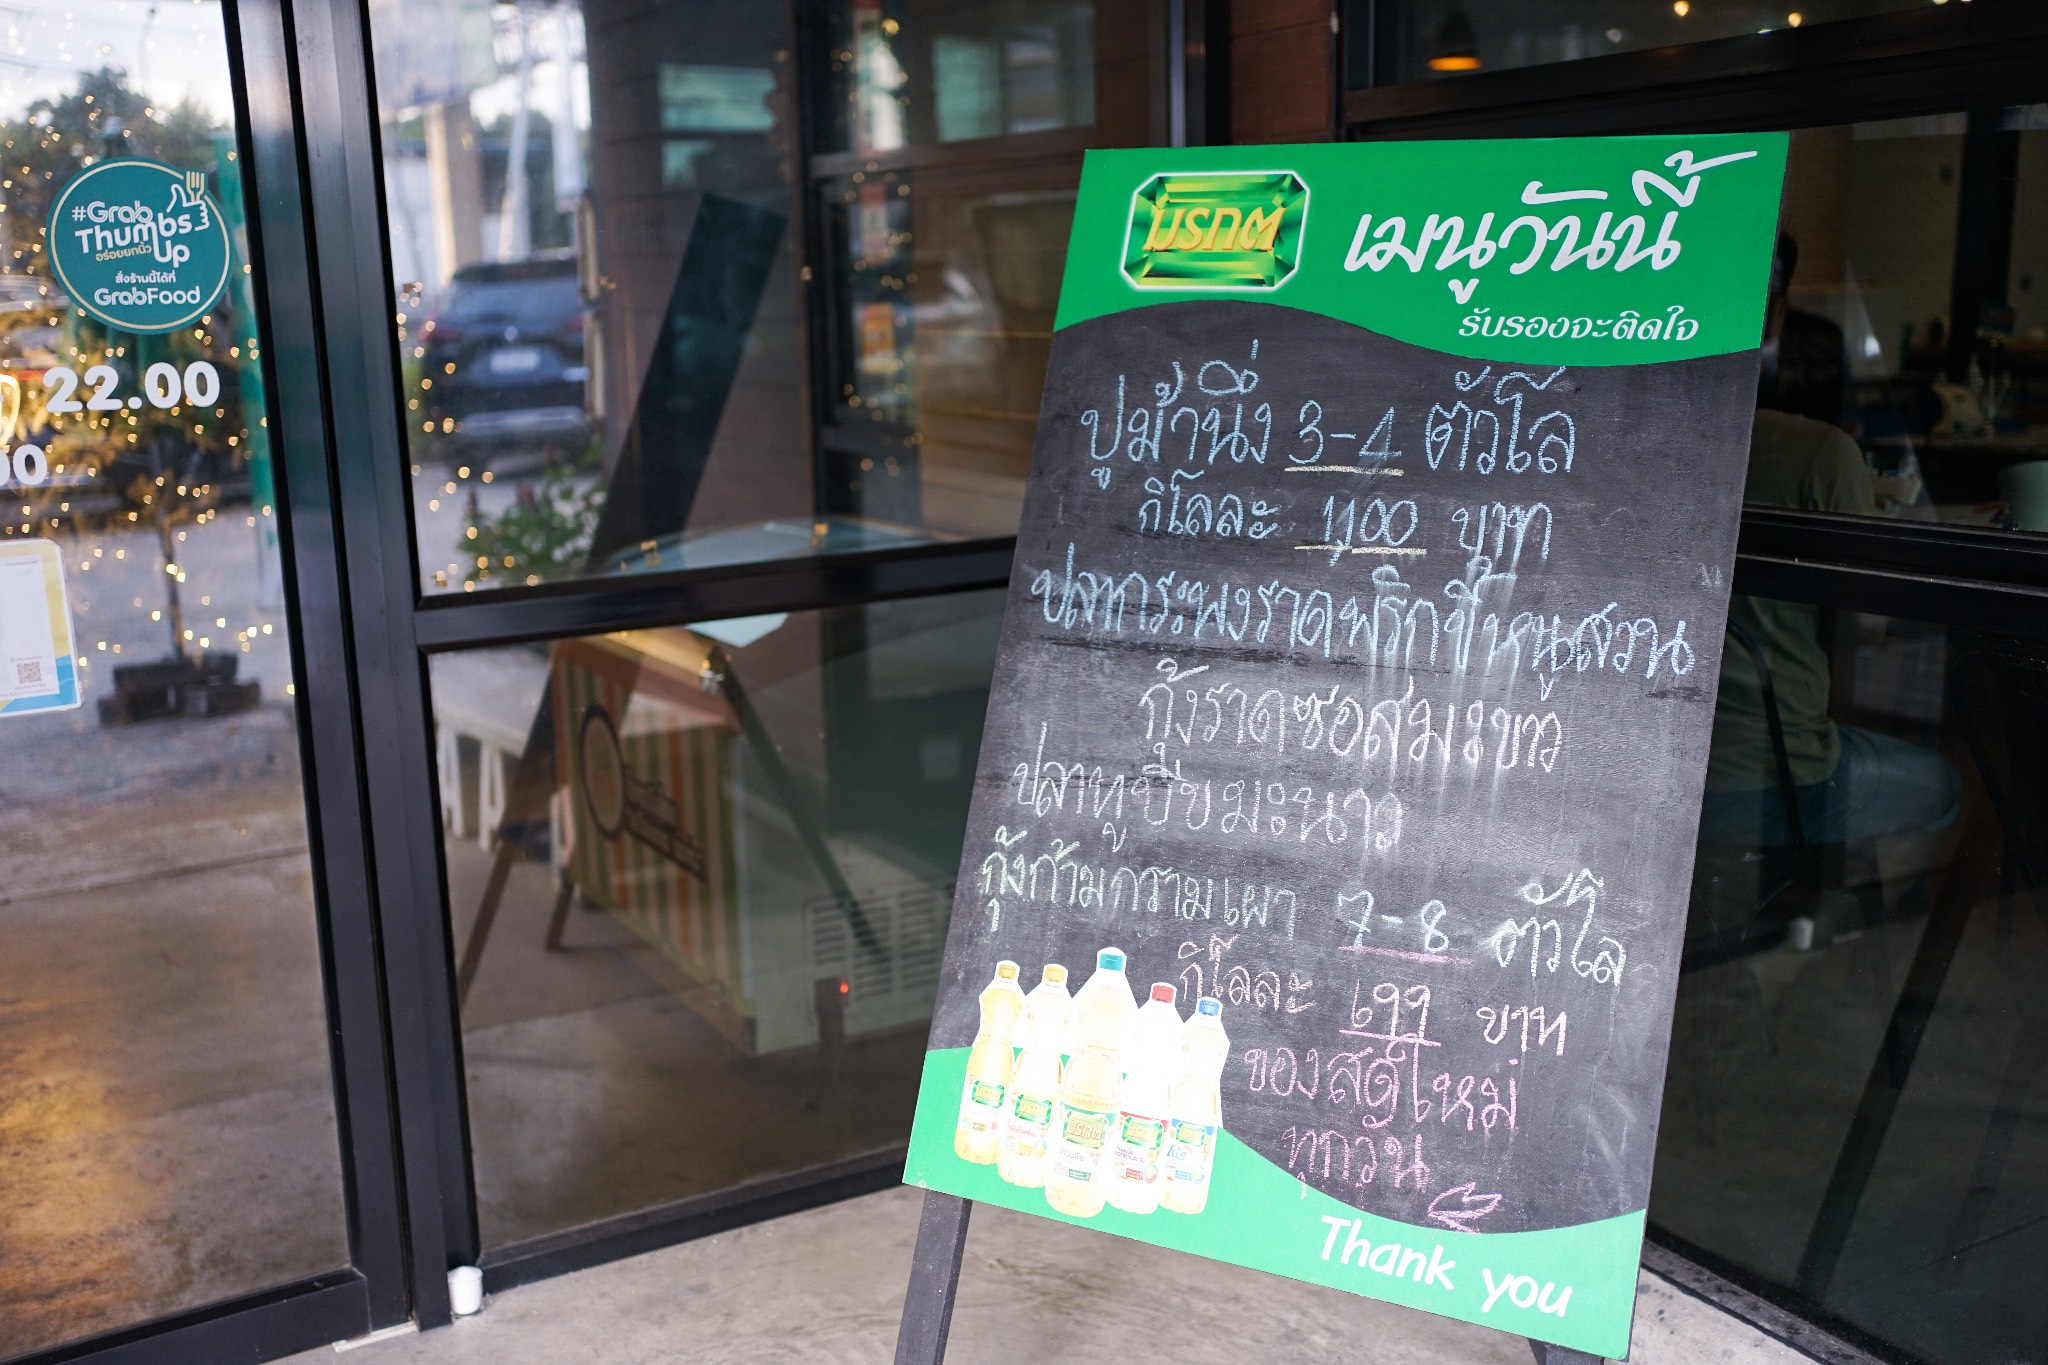 #Grab
Thumbs
Up
อร่อยยกนิ้ว
สั่งร้านนี้ได้ที่
GrabFood
22.00
00
มรกต
เมนูวันนี้
รับรองจะติดใจ
ปูม้านึ่ง 3-4 ตัวโล
กิโลละ 1,100 บาท
ปลากระพงราดพริกขี้หนูสวน
กุ้งราดซอสมะขาม
ปลาทูบีบมะนาว
กุ้งก้ามกรามเผา 7-8 ตัวโล
กิโลละ บาท
ของสดใหม่
ทุกวัน
มรกต
Thank you